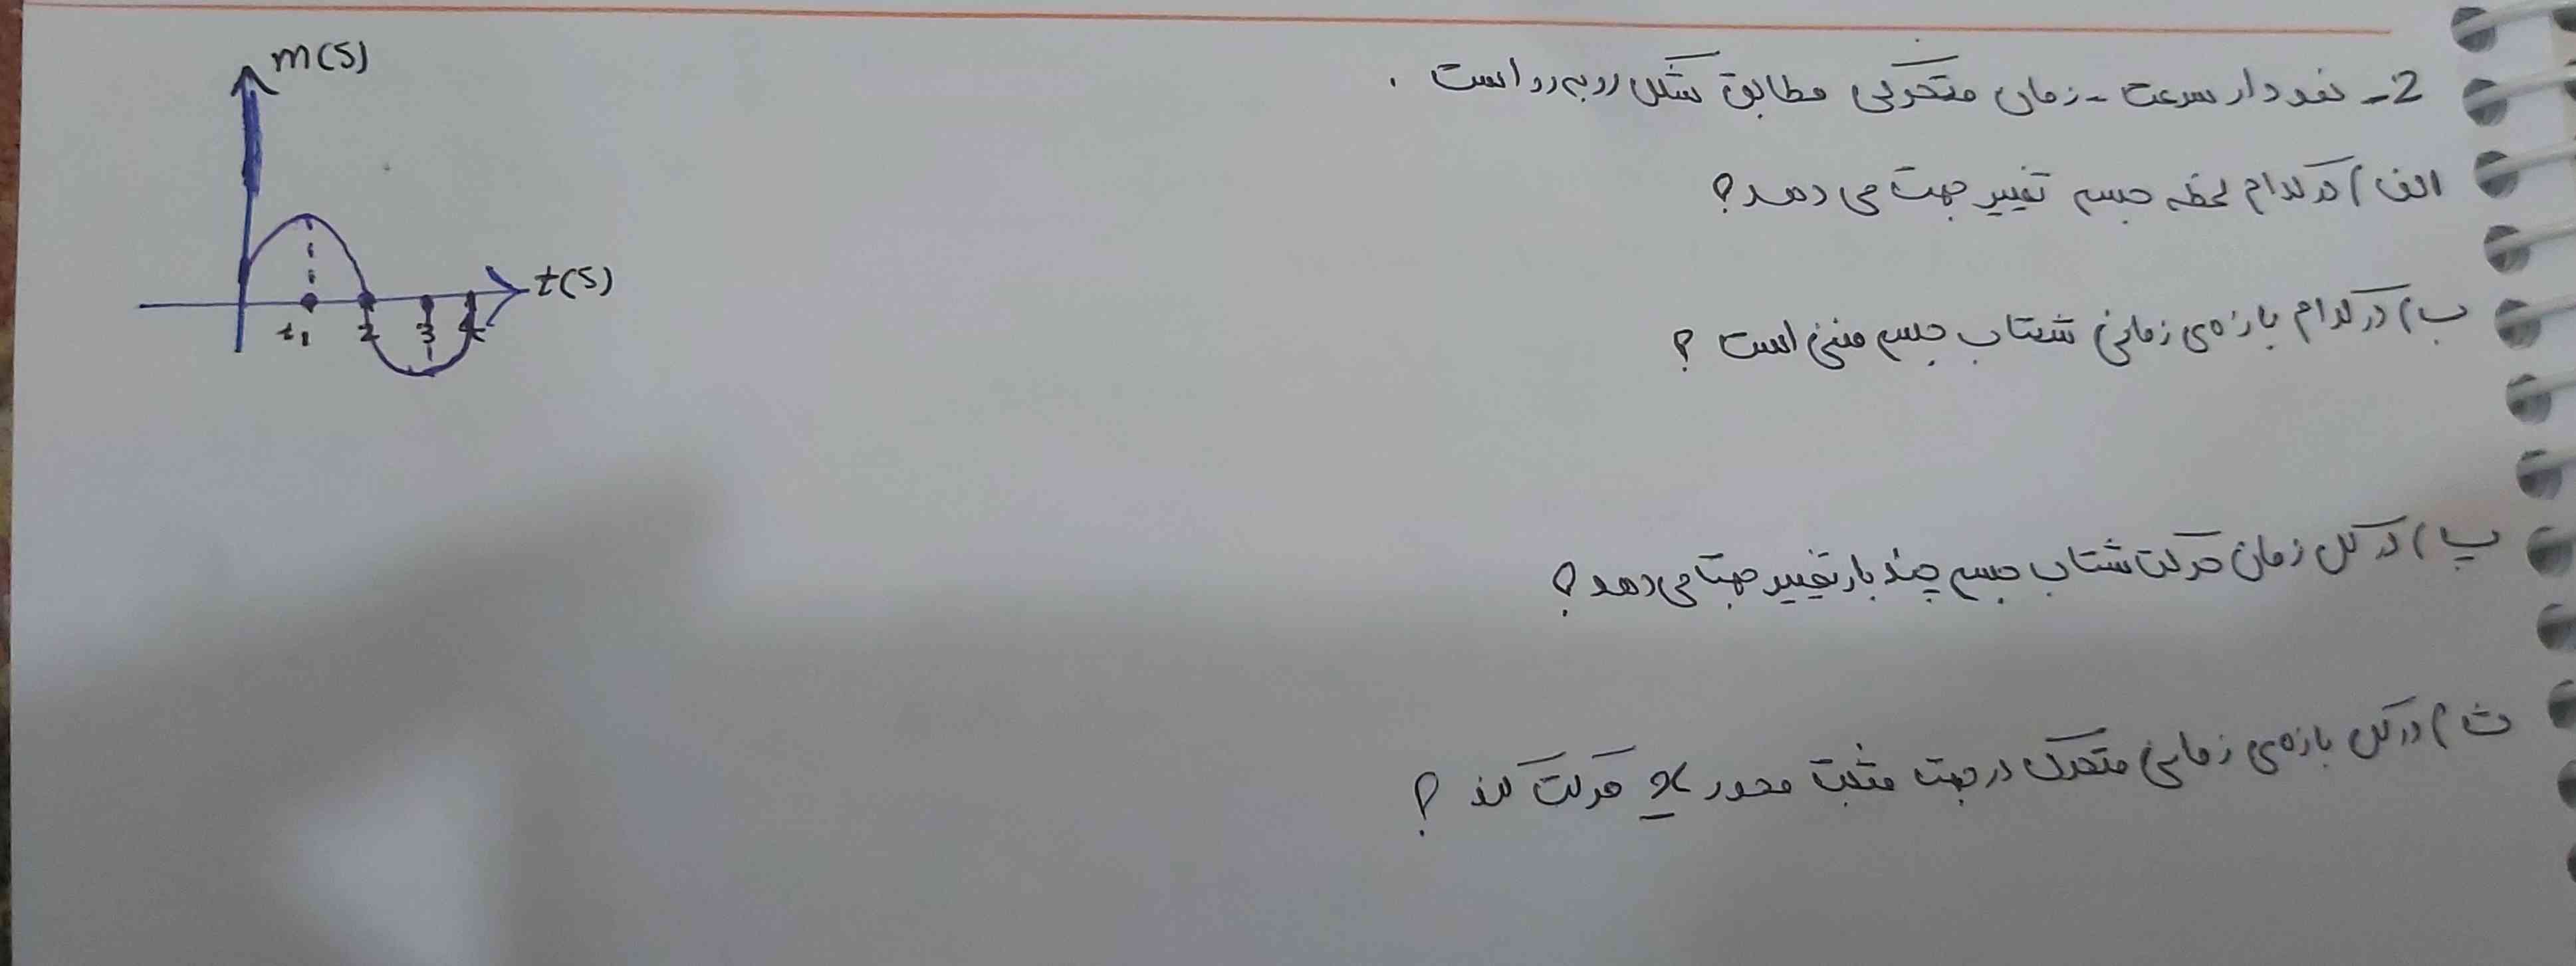 2- نمودار سرعت - زمان متحرکی مطابق شکل روبه رو است .
m(s)
t(s)
t1 2 3 4
الف) در کدام لحظه جسم تغییر جهت می دهد؟
ب) در کدام بازه ی زمانی شتاب جسم منفی است ؟
پ) در کل زمان حرکت شتاب جسم چند بار تغییر جهت می دهد؟
ث) در کل بازه ی زمانی متحرک در جهت مثبت محور x حرکت کند ؟